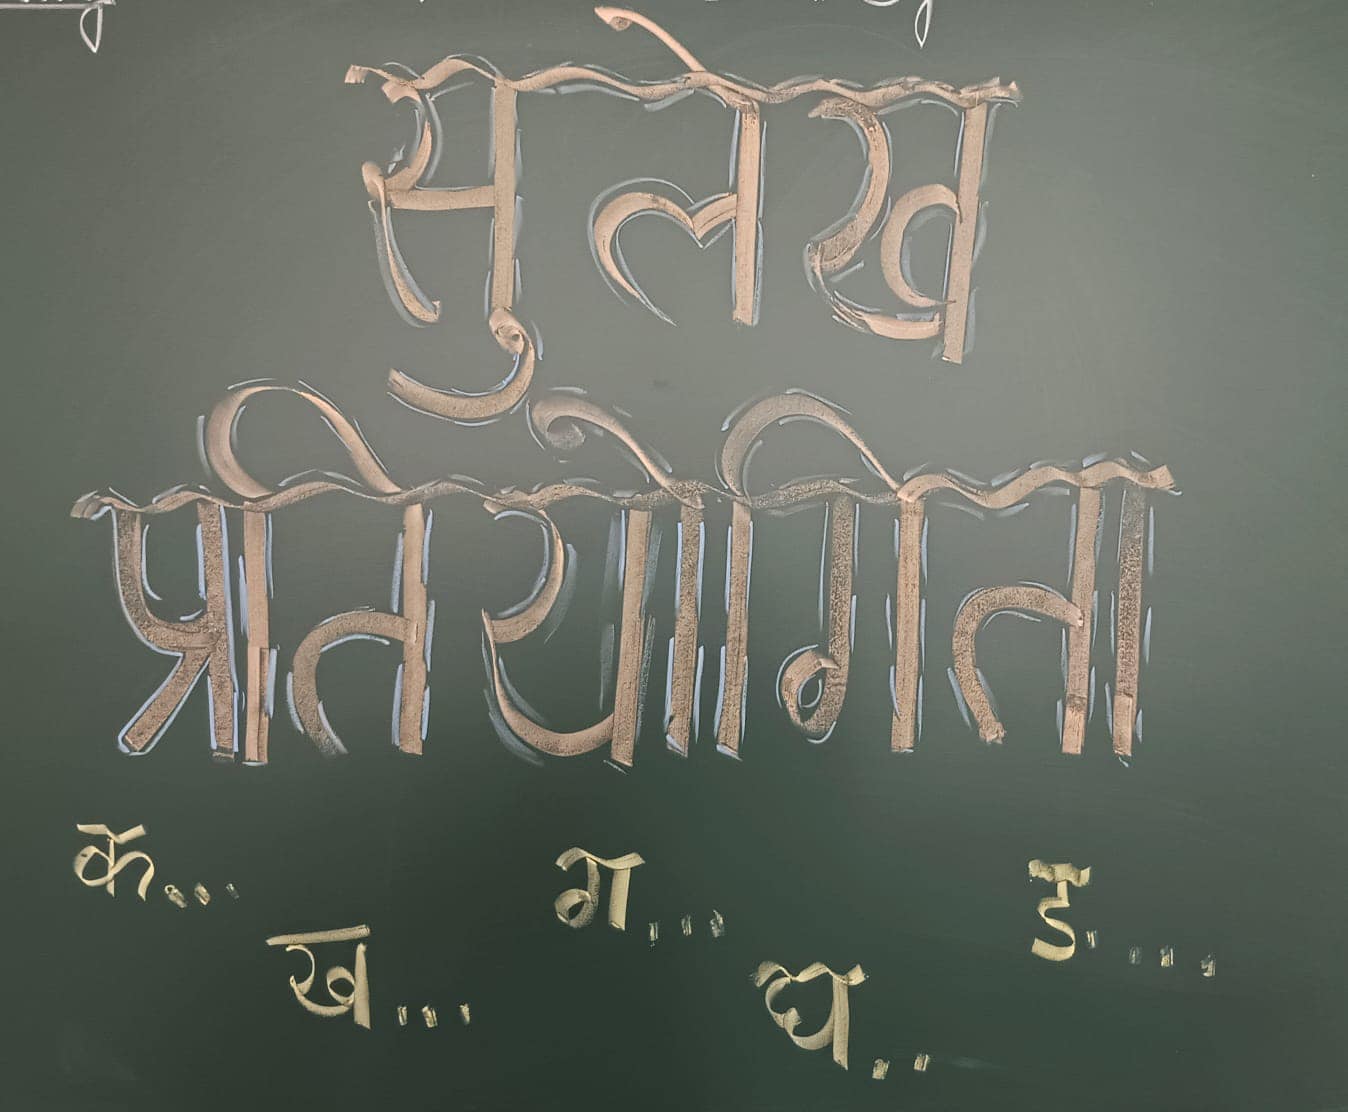 सुलेख
प्रतियोगिता
क... ख... ग... घ.. ङ....